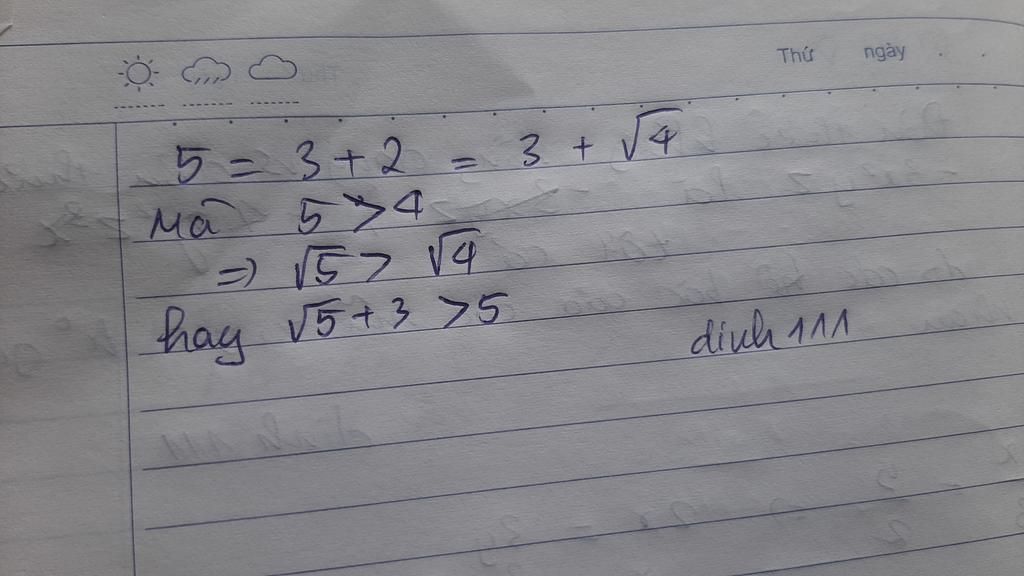 Thứ ngày
5 = 3 + 2 = 3 + √4
Mà 5 > 4
=> √5 > √4
hay √5 + 3 > 5
dinh 111